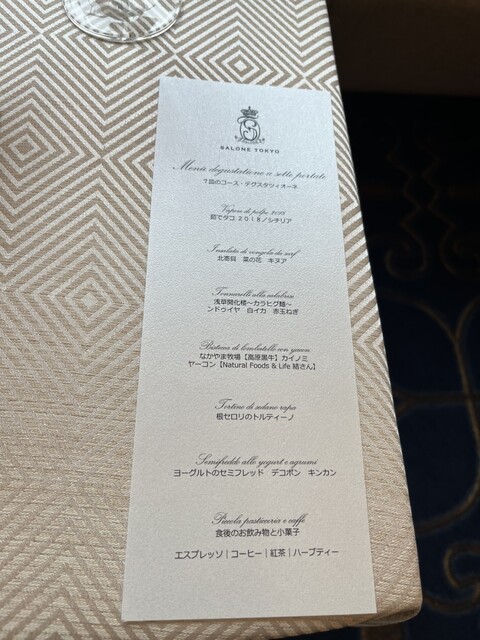 SALONE TOKYO
Menù degustazione a sette portate
7皿のコース・デグスタツィオーネ
Vapore di polpo 2018
茹でタコ 2018／シチリア
Insalata di vongola da surf
北寄貝 菜の花 キヌア
Tonnarelli alla calabrese
浅草開化楼～カラヒグ麺～
ンドゥイヤ 白イカ 赤玉ねぎ
Bistecca di lombatello con yacon
なかやま牧場【高原黒牛】カイノミ
ヤーコン【Natural Foods & Life 結さん】
Tortino di sedano rapa
根セロリのトルティーノ
Semifreddo allo yogurt e agrumi
ヨーグルトのセミフレッド デコポン キンカン
Piccola pasticceria e caffè
食後のお飲み物と小菓子
エスプレッソ｜コーヒー｜紅茶｜ハーブティー